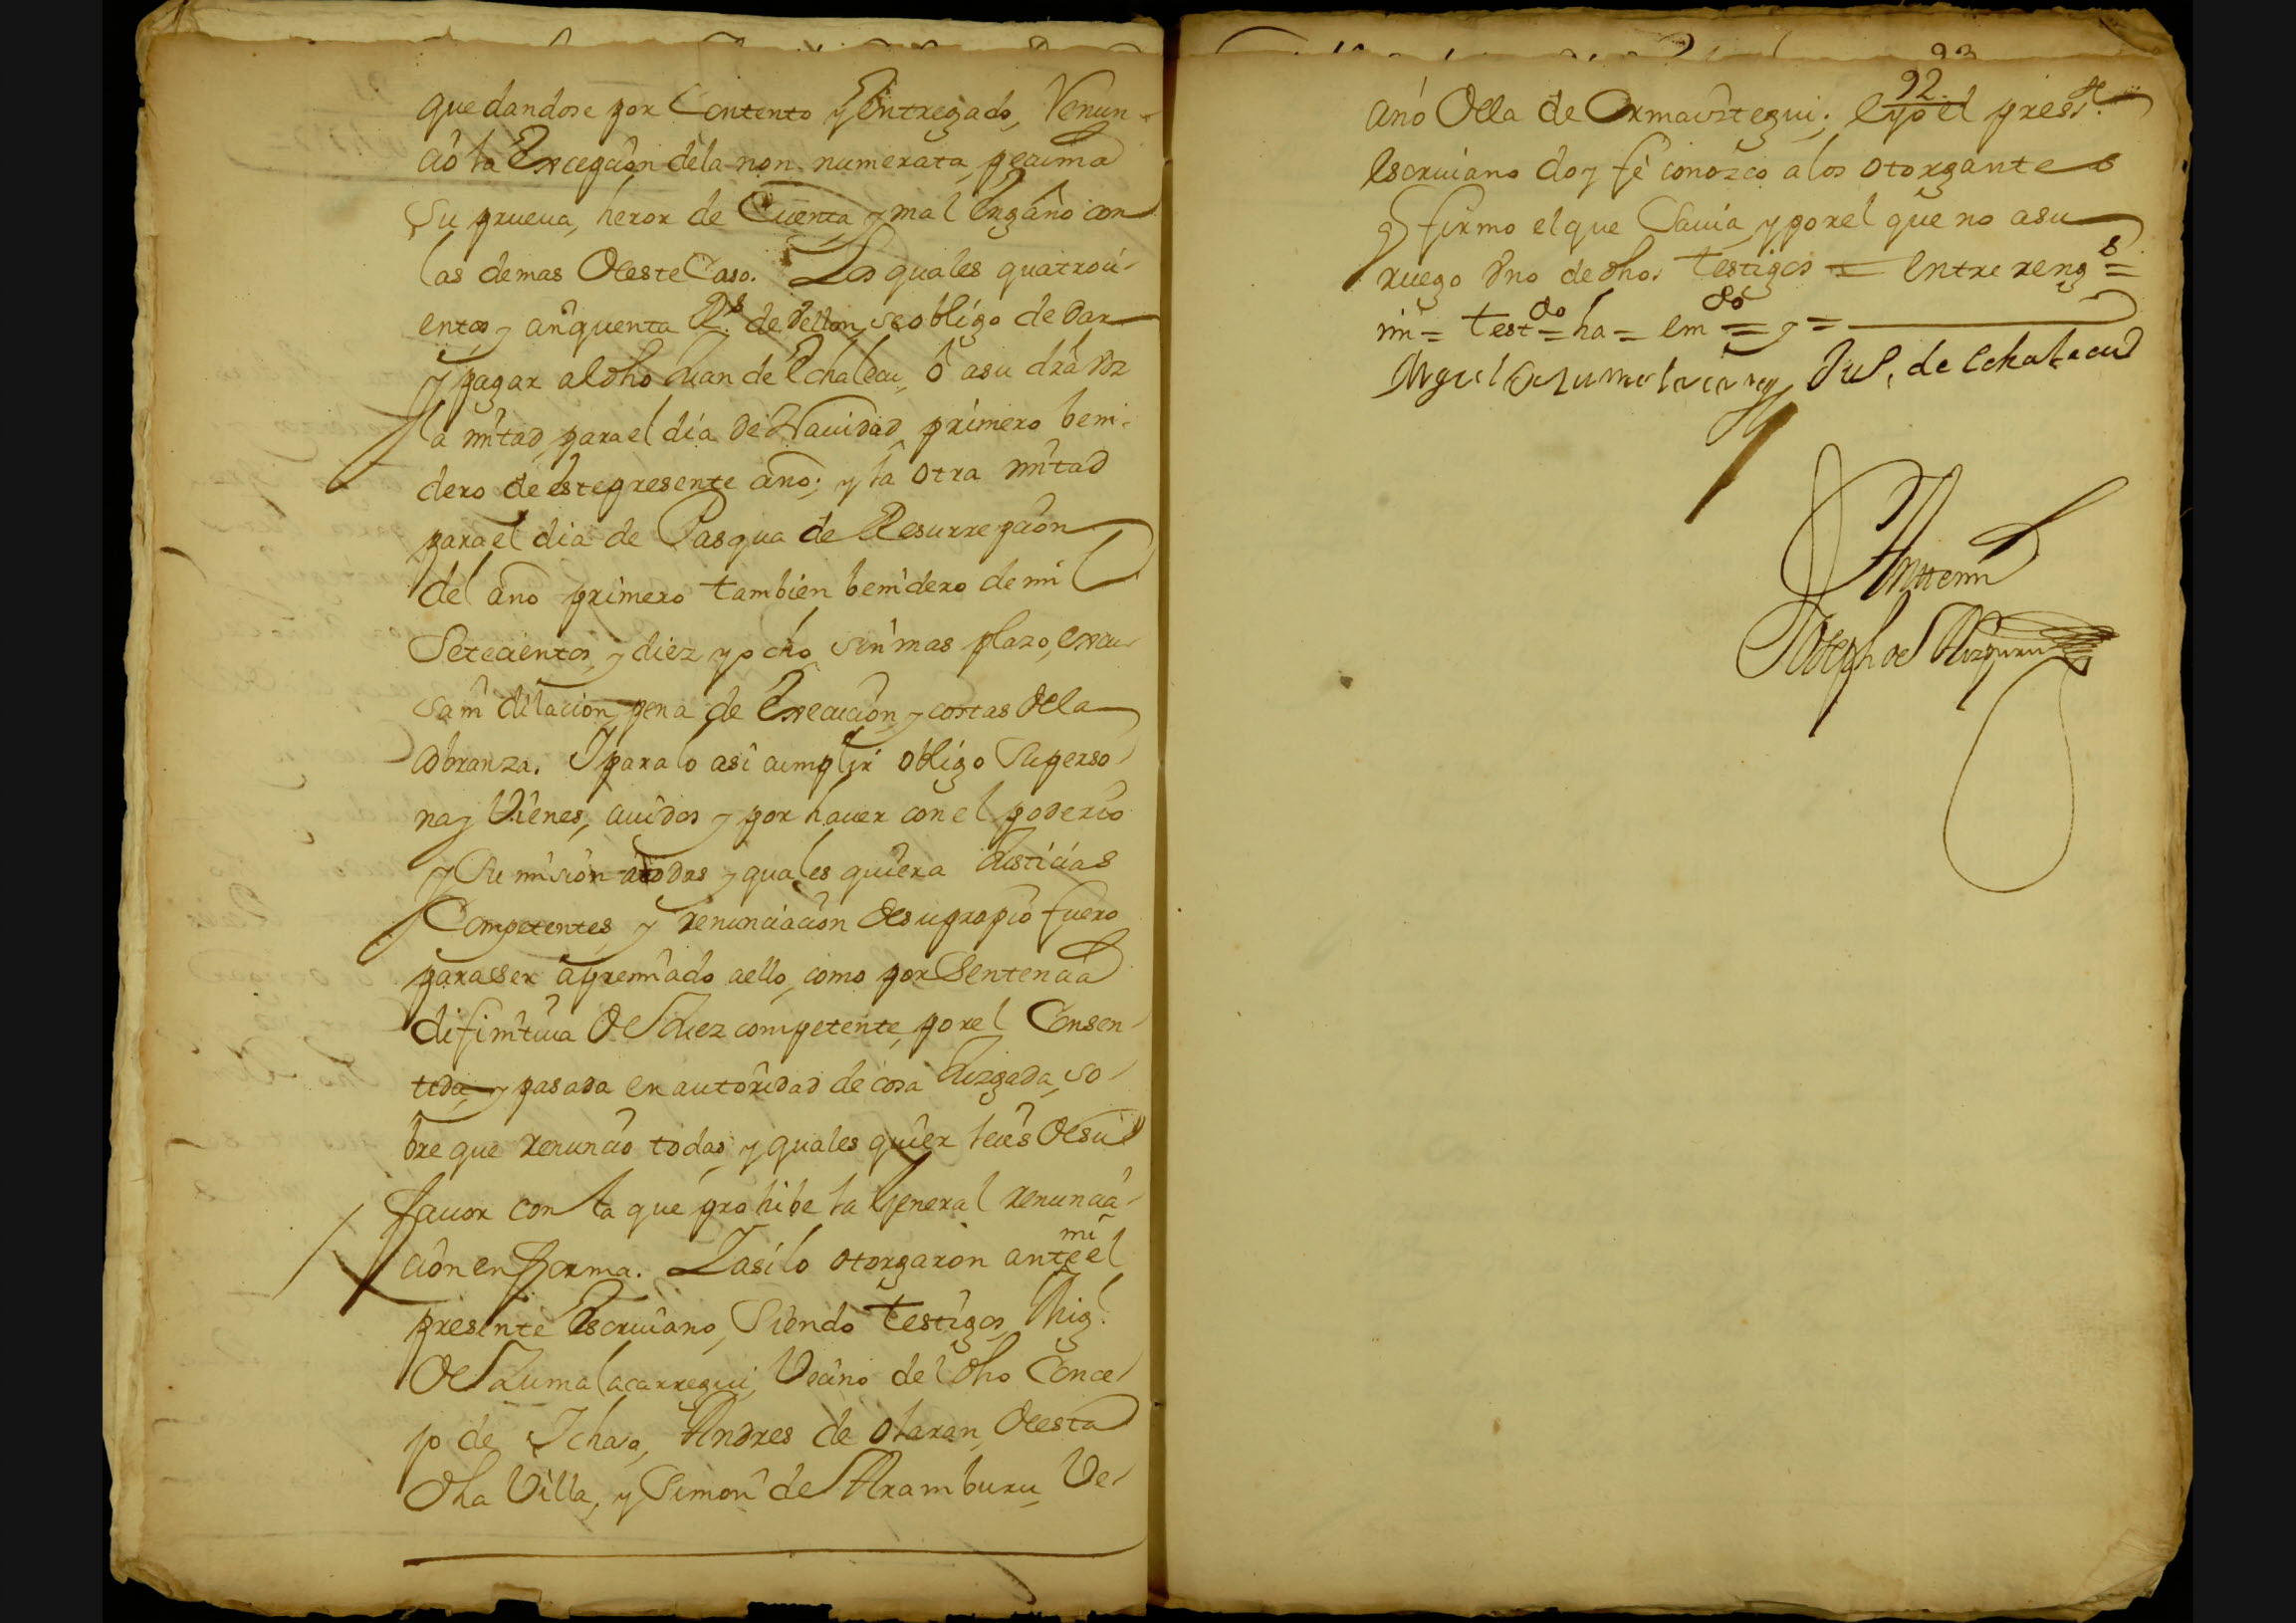 quedandose por Contento y entregado, Renun-
cio la Excepcion dela non numerata pecunia
Su prueva, heror de Cuenta y mal engaño con
las demas deste Caso. Los quales quatroci-
entos y cinquenta R.s de Vellon, se obligo de dar
y pagar al dho Juan de Echalecu, ó asu dra voz
la mitad para el dia de Navidad primero beni-
dero de este presente año; y la otra mitad
para el dia de Pasqua de Resurrepcion
del año primero tambien benidero de mil
Setecientos y diez y ocho sin mas plazo, excu-
sa ni dilacion pena de Execucion y costas dela
cobranza. I para lo asi cumplir obligo Su perso-
na y Vienes, avidos y por haver con el poderio
y Sumision atodas y quales quiera Justicias
Competentes y renunciacion de su propio fuero
para sser apremiado aello, como por Sentencia
difinitiva de Juez competente, por el Consen-
tida y pasada en autoridad de cosa Juzgada, so-
bre que renuncio todas y quales quier leies de su
favor con la que prohibe la General renuncia-
cion en forma. I asi lo otorgaron ante mi el
presente Escrivano, Siendo testigos, Mig.l
de Zumalacarregui, Vecino del dho Conce-
jo de Ichaso, Andres de Olaran, desta
dha Villa, y Simon de Aramburu, Ve-
92
cino della de Ormaiztegui; e yo el press.te
escrivano doy fe conozco a los otorgantes
y firmo el que Savia, y por el que no asu
ruego Vno de dhos testigos = entre reng.s =
mi = test.do = ha = em.do = y =
Miguel de Zumalacarregui Ju.o de Echalecu
Antemi
Joseph de Aizpuru